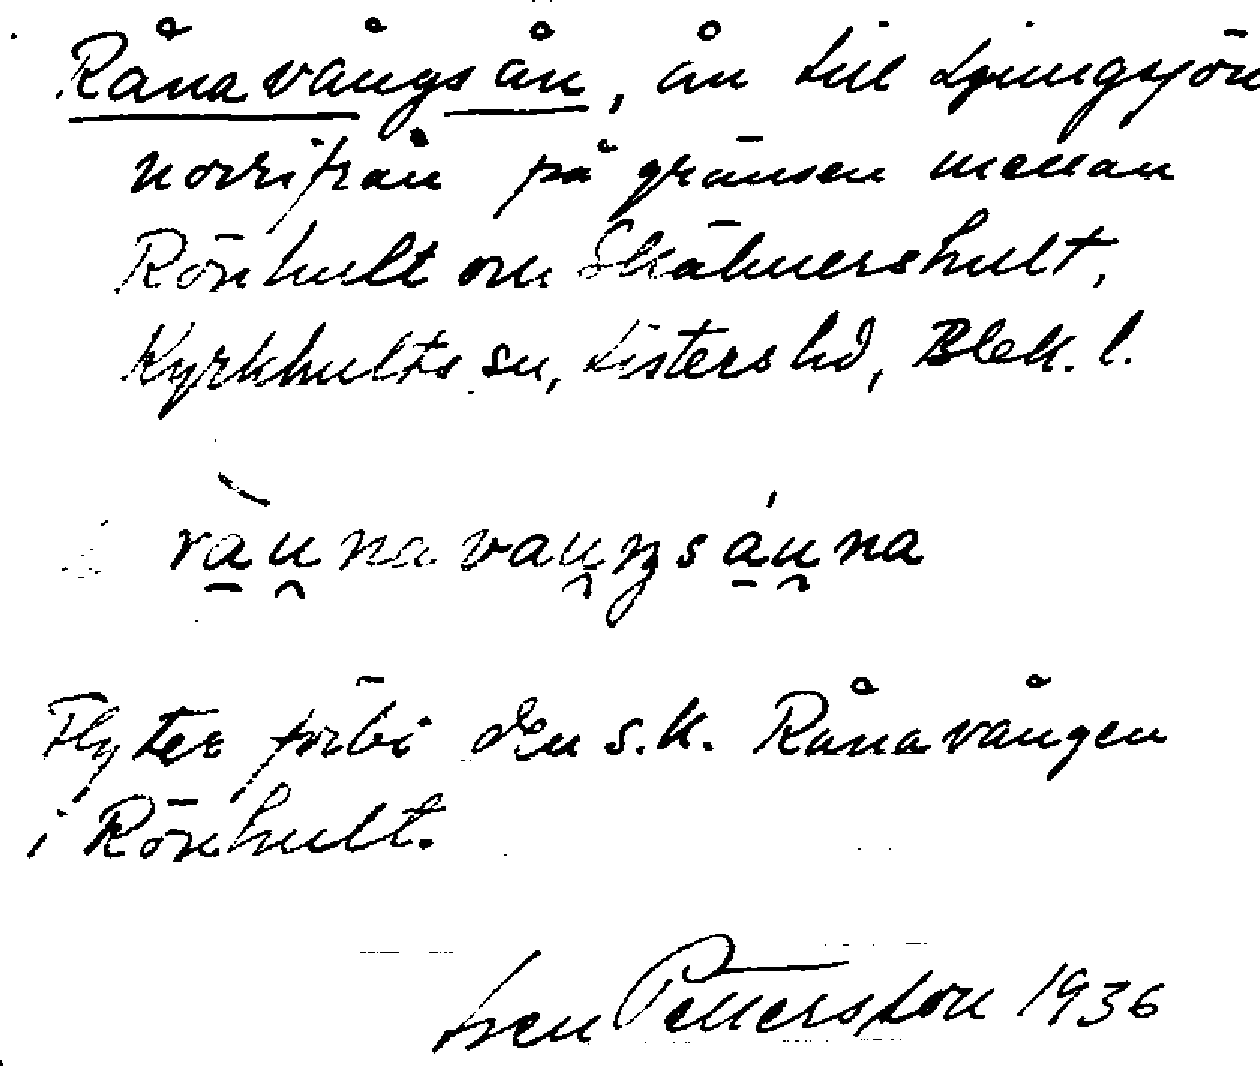 Rånavångsån, ån till Ljungsjön
norrifrån på gränsen mellan
Rönhult och Skälmershult,
Kyrkhults sn, Listers hd, Blek. l.
rà̱u̯navau̯ŋsá̱u̯na
Flyter förbi den s.k. Rånavången
i Rönhult.
Sven Pettersson 1936